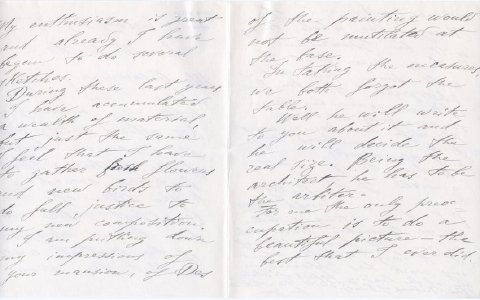 My enthusiasm is great
and already I have
began to do several
sketches.
During these last years
I have accumulated
a wealth of material,
but just the same
I feel that I have
to gather fresh flowers
and new birds to
do full justice to
my new composition.
I am putting down
my impressions of
your mansion, of Des
of the painting would
not be mutilated at
the base.
In taking the measures,
we both forgot the
table.
Well he will write
to you about it and
he will decide the
real size. Being the
architect he has to be
the arbiter.
To me the only preoc
cupation is to do a
beautiful picture — the
best that I ever did.